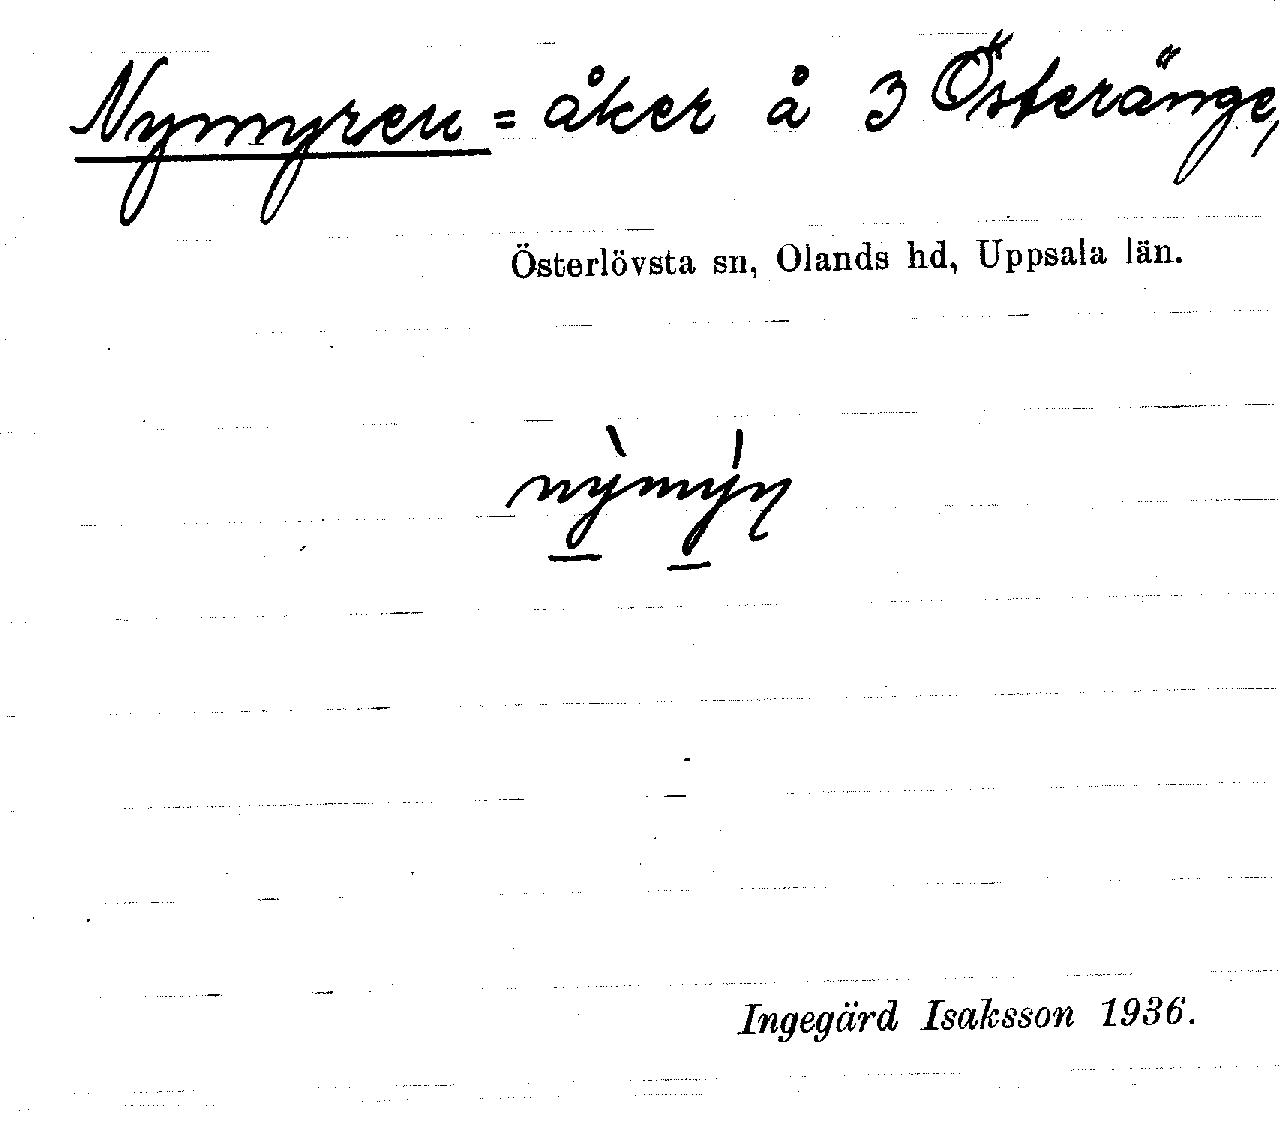 Nymyren = åker å 3 Österänge,
Österlövsta sn, Olands hd, Uppsala län.
nỳmýɳ
Ingegärd Isaksson 1936.